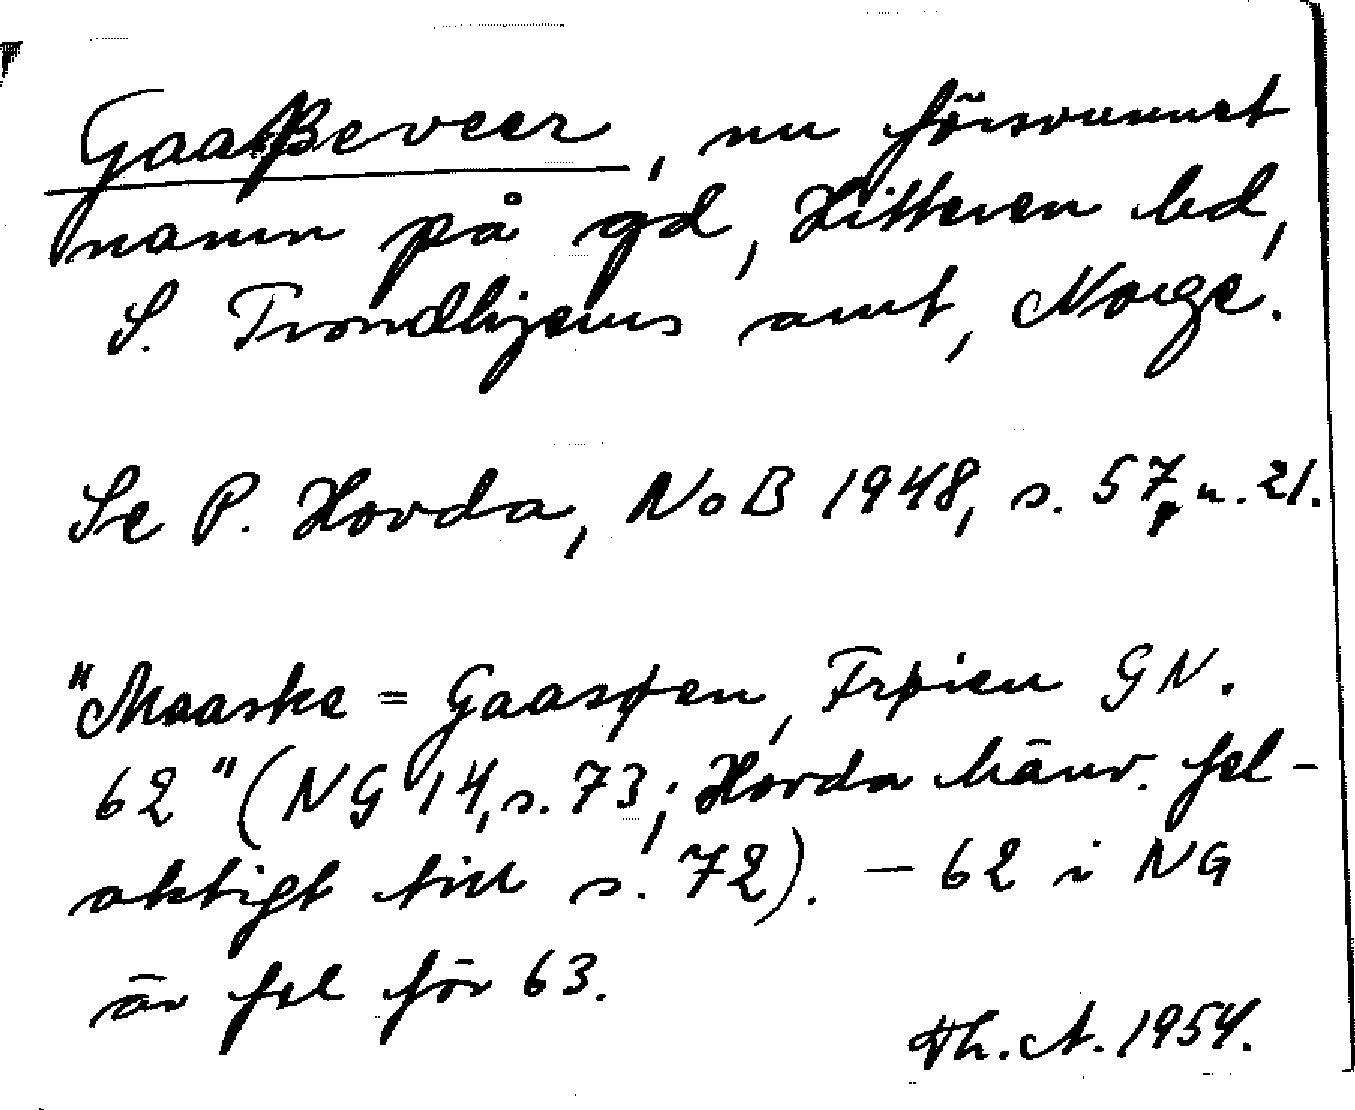 Gaaßeveer, nu försvunnet
namn på gd, Hitteren bd,
S. Trondhjems amt, Norge.
Se P. Hovda, NoB 1948, s. 57, n. 21.
"Maaske = Gaasøen, Frøien GN.
62" (NG 14, s. 73; Hovda hänv. fel-
aktigt till s. 72). – 62 i NG
är fel för 63.
Th. A. 1954.